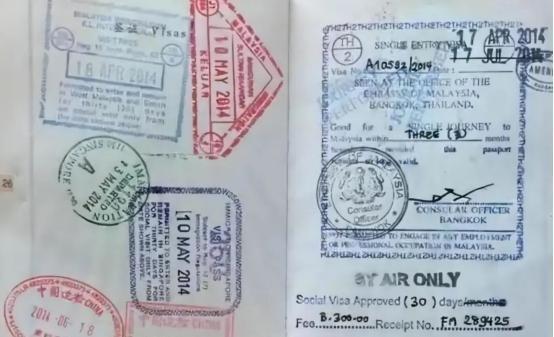 Visas
18 APR 2014
MALAYSIA
KELUAR
10 MAY 2014
26
IMMIGRATION
SINGAPORE
DEPARTED
13 MAY 2014
A
SINGAPORE
VISIT PASS
PERMITTED TO ENTER AND
REMAIN IN SINGAPORE
FOR THIRTY DAYS FOR
SOCIAL VISIT ONLY FROM
DATE SHOWN ABOVE.
10 MAY 2014
中国边检 CHINA
2014-06-18
TH
2
SINGLE ENTRY VISA
17 APR 2014
17 JUL 2014
Visa No. A10592/2014
SEEN AT THE OFFICE OF THE
EMBASSY OF MALAYSIA,
BANGKOK, THAILAND.
Good for a SINGLE JOURNEY to
Malaysia within THREE (3) months
hereof, provided this passport
valid.
Consular
Officer
CONSULAR OFFICER
BANGKOK
TO ENGAGE IN ANY EMPLOYMENT
OR PROFESSIONAL OCCUPATION IN MALAYSIA.
BY AIR ONLY
Social Visa Approved (30) days/months
Fee B.300.00 Receipt No. FA 289425